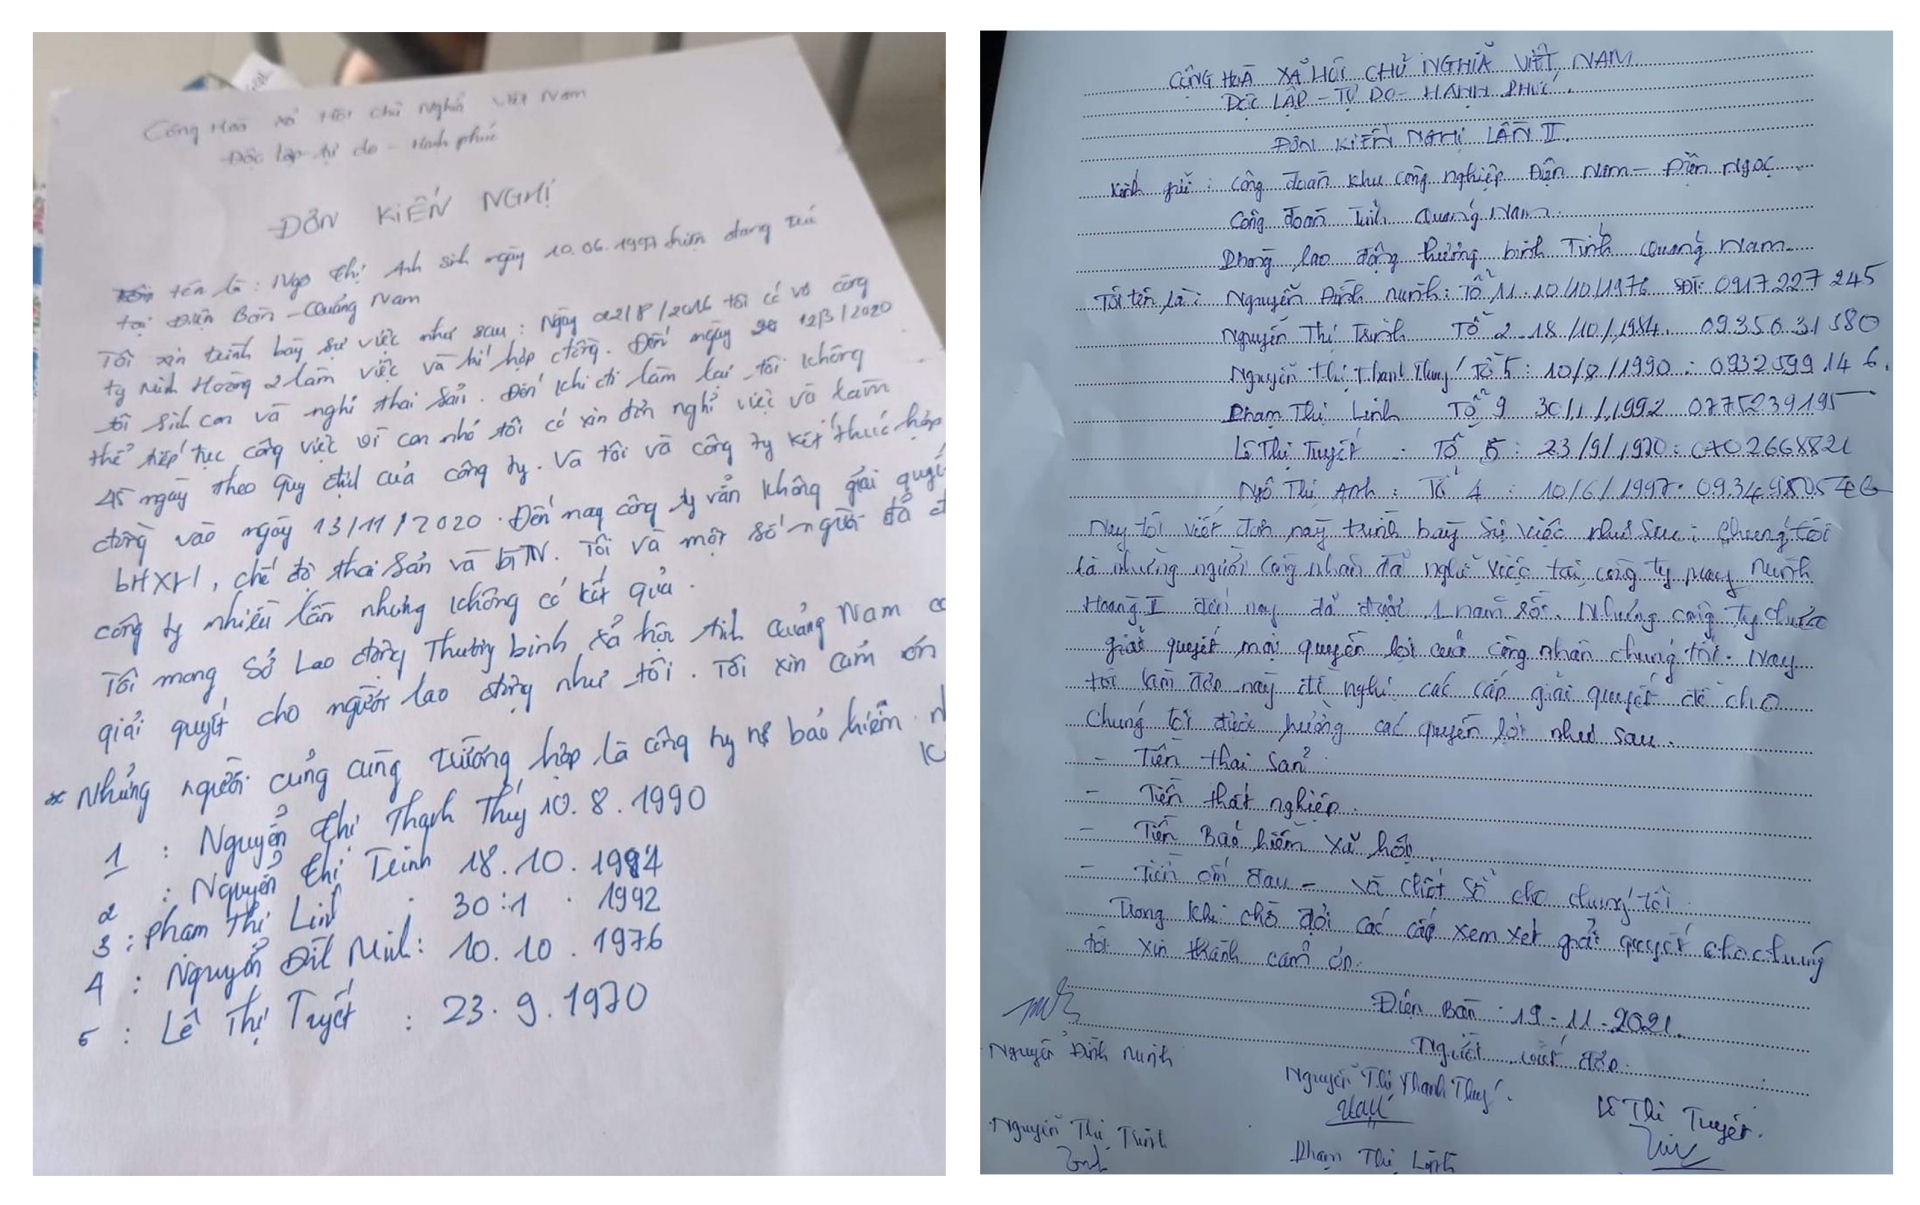 Cộng Hoà xã Hội Chủ Nghĩa Việt Nam
Độc lập tự do - Hạnh phúc
ĐƠN KIẾN NGHỊ
tên là : Ngô Thị Anh sinh ngày 10.06.1997 hiện đang trú
tại Điện Bàn - Quảng Nam
Tôi xin trình bày sự việc như sau : Ngày 02/8/2016 tôi có vô công
ty Minh Hoàng 2 làm việc và kí hợp đồng. Đến ngày 12/3/2020
tôi sinh con và nghỉ thai sản. Đến khi đi làm lại tôi không
thể tiếp tục công việc vì con nhỏ tôi có xin đơn nghỉ việc và làm
45 ngày theo quy định của công ty. Và tôi và công ty kết thúc hợp
đồng vào ngày 13/11/2020. Đến nay công ty vẫn không giải quyết
bHXH, chế độ thai sản và BTN. Tôi và một số người đã
công ty nhiều lần nhưng không có kết quả.
Tôi mong Sở Lao động Thương binh xã hội tỉnh Quảng Nam
giải quyết cho người lao động như tôi. Tôi xin cảm ơn
* Những người cũng cùng trường hợp là công ty nợ bảo hiểm
1 : Nguyễn Thị Thanh Thuý 10.8.1990
2 : Nguyễn Thị Trinh 18.10.1984
3 : Phạm Thị Linh 30:1.1992
4 : Nguyễn Đình Minh : 10.10.1976
5 : Lê Thị Tuyết : 23.9.1970
CỘNG HOÀ XÃ HỘI CHỦ NGHĨA VIỆT NAM
ĐỘC LẬP - TỰ DO - HẠNH PHÚC.
ĐƠN KIẾN NGHỊ LẦN II.
Kính gửi : Công đoàn khu công nghiệp Điện Nam - Điện Ngọc
Công đoàn Tỉnh Quảng Nam.
Phòng lao động thương binh Tỉnh Quảng Nam.
Tôi tên là : Nguyễn Đình Minh : Tổ 11 : 10/10/1976 SĐT: 0917227245
Nguyễn Thị Trinh Tổ 2 18/10/1984. 0935631580
Nguyễn Thị Thanh Thuý Tổ 5 : 10/8/1990 : 0932599146.
Phạm Thị Linh Tổ 9 30/1/1992 0775239195
Lê Thị Tuyết . Tổ 5 : 23/9/1970 :
Ngô Thị Anh : Tổ 4 : 10/6/1997.
Nay tôi viết đơn này trình bày sự việc như sau : Chúng tôi
là những người công nhân đã nghỉ việc tại công ty may Minh
Hoàng II đến nay đã được 1 năm rồi. Nhưng công ty chưa
giải quyết mọi quyền lợi của công nhân chúng tôi. Nay
tôi làm đơn này đề nghị các cấp giải quyết để cho
chúng tôi được hưởng các quyền lợi như sau.
- Tiền thai sản
- Tiền thất nghiệp.
- Tiền Bảo hiểm xã hội.
- Tiền ốm đau - và chốt sổ cho chúng tôi.
Trong khi chờ đợi các cấp xem xét giải quyết cho chúng
tôi xin thành cảm ơn.
Điện Bàn : 19 - 11 - 2021.
Người viết đơn.
Nguyễn Đình Minh
Nguyễn Thị Thanh Thuý.
Lê Thị Tuyết.
Nguyễn Thị Trinh
Phạm Thị Linh